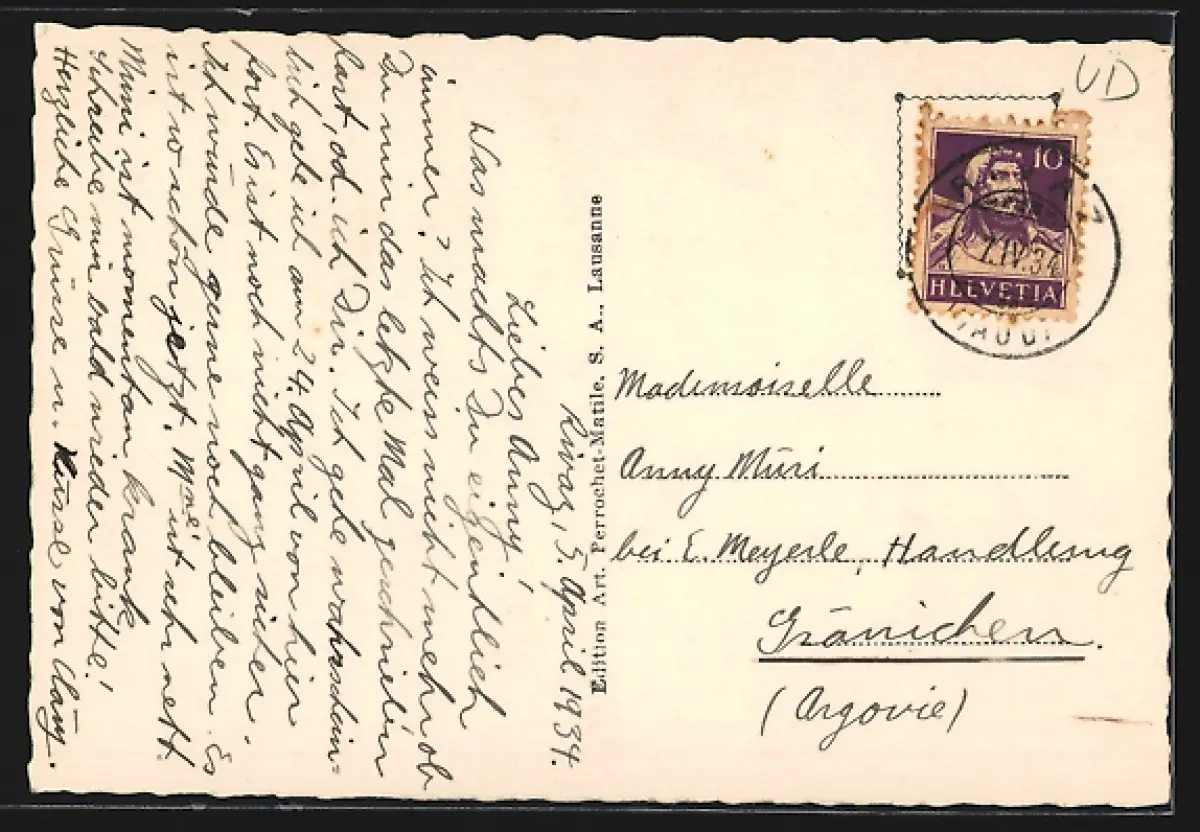 Rivaz, 5. April 1934.
Liebes Anny!
Was machts Du eigendlich
immer? Ich weiss nicht mehr ob
Du mir das letzte Mal geschrieben
hast, od. ich Dir. Ich gehe wahrschein-
lich gehe ich am 24. April von hier
fort. Es ist noch nicht ganz sicher.
Ich würde gerne noch bleiben. Es
ist so schön jetzt. Mme ist sehr nett.
Mimi ist momentan krank.
Schreibe mir bald wieder bitte!
Herzliche Grüsse u. Küsse von
Edition Art. Perrochet-Matile, S. A., Lausanne
UD
10
HELVETIA
RIVAZ
7.IV.34
(VAUD)
Mademoiselle
Anny Müri
bei E. Meyerle, Handlung
Gränichen.
(Argovie)